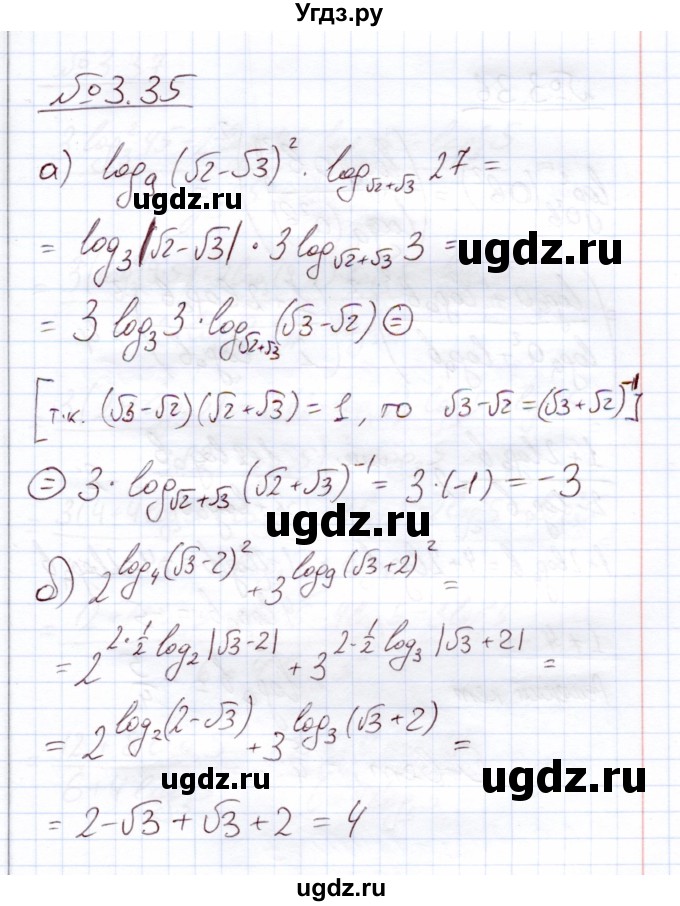 Угдз.ру
№3.35
а) log₉(√2-√3)² · log_{√2+√3} 27 =
= log₃|√2-√3| · 3 log_{√2+√3} 3 =
ugdz.ru
ugdz.ru
= 3 log₃3 · log_{√2+√3}(√3-√2) ⊜
[т.к. (√3-√2)(√2+√3) = 1, то √3-√2 = (√3+√2)⁻¹]
⊜ 3 · log_{√2+√3}(√2+√3)⁻¹ = 3·(-1) = -3
ugdz.ru
б) 2^{log₄(√3-2)²} + 3^{log₉(√3+2)²} =
= 2^{2·½ log₂|√3-2|} + 3^{2·½ log₃|√3+2|} =
= 2^{log₂(2-√3)} + 3^{log₃(√3+2)} =
ugdz.ru
ugdz.ru
= 2-√3+√3+2 = 4
ugdz.ru